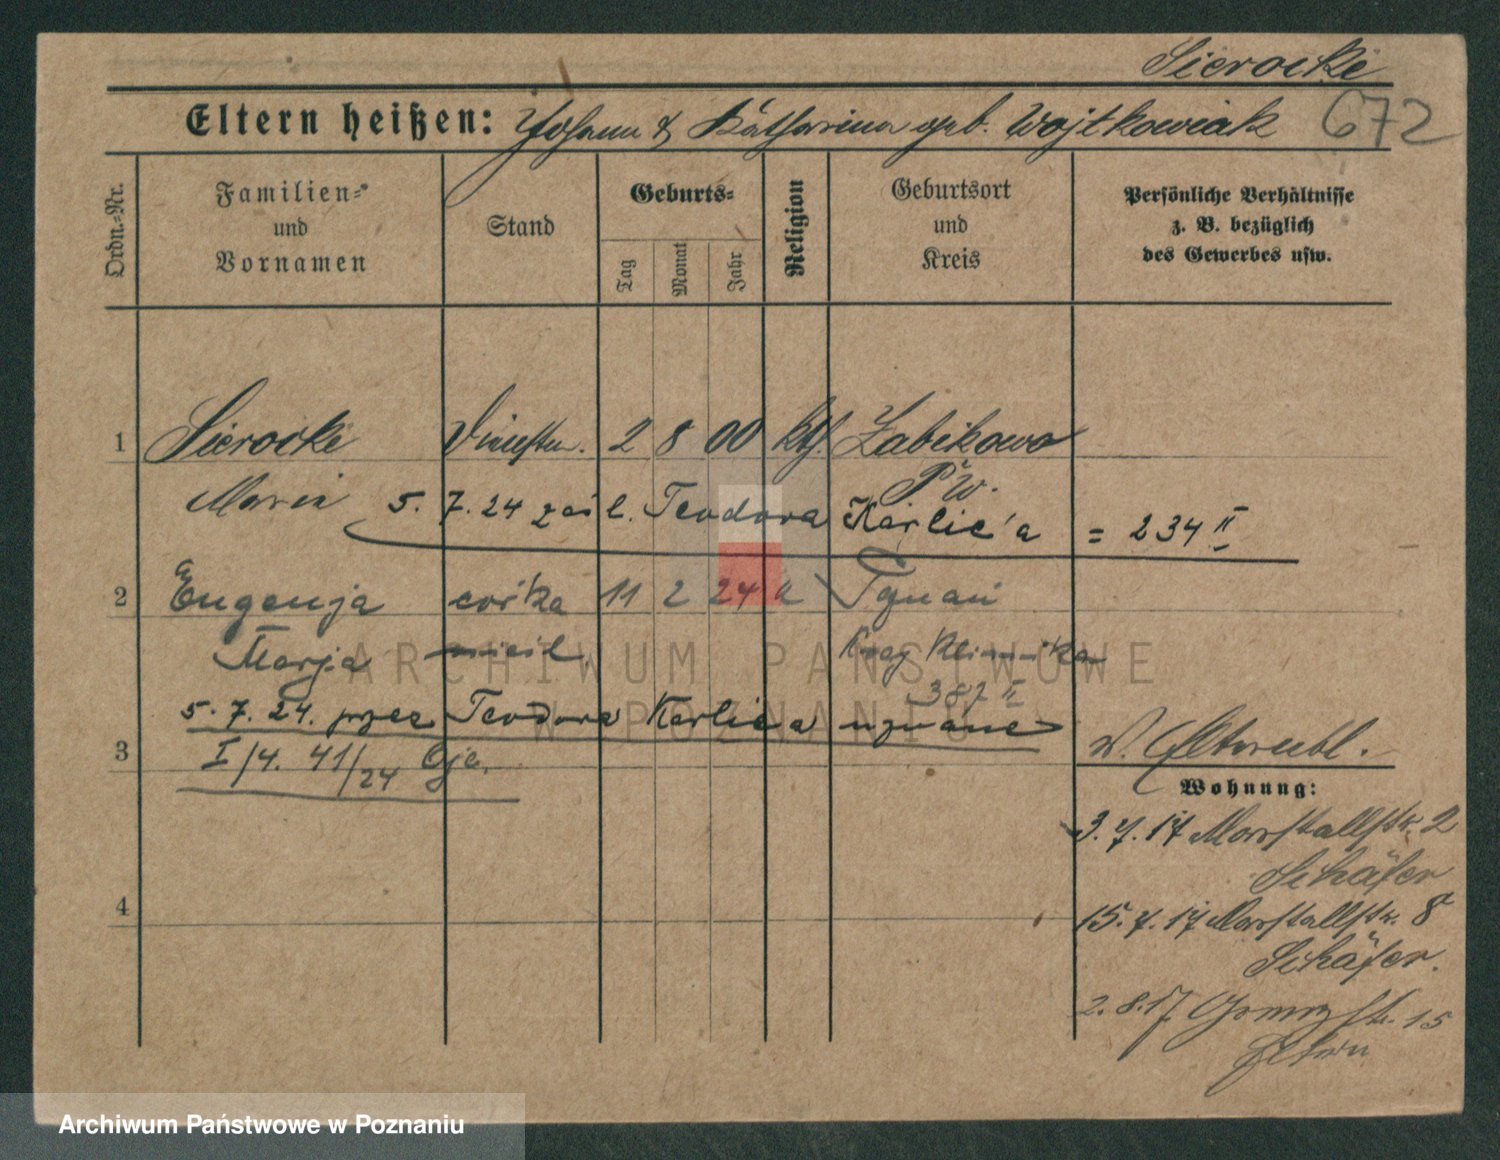 Sierocki
Eltern heißen: Johann & Katharina geb. Wojtkowiak 672
Ordn.-Nr.
Familien-
und
Vornamen
Stand
Geburts-
Tag
Monat
Jahr
Religion
Geburtsort
und
Kreis
Persönliche Verhältnisse
z. B. bezüglich
des Gewerbes usw.
1 Sierocki 2 8 00 kth. Zabikowo
Maria P. W.
5. 7. 24 zaśl. Teodora Karlic'a = 234 II
2 Eugenja córka 11 2 24 k
Marja
387 II
5. 7. 24. przez Teodora Karlic'a uznane
3 I/4. 41/24
Wohnung:
3. 7. 17 Marstallstr. 2
Schäfer
15. 7. 17 Marstallstr. 8
Schäfer.
2. 8. 17 15
Eltern
4
ARCHIWUM PAŃSTWOWE
W POZNANIU
Archiwum Państwowe w Poznaniu